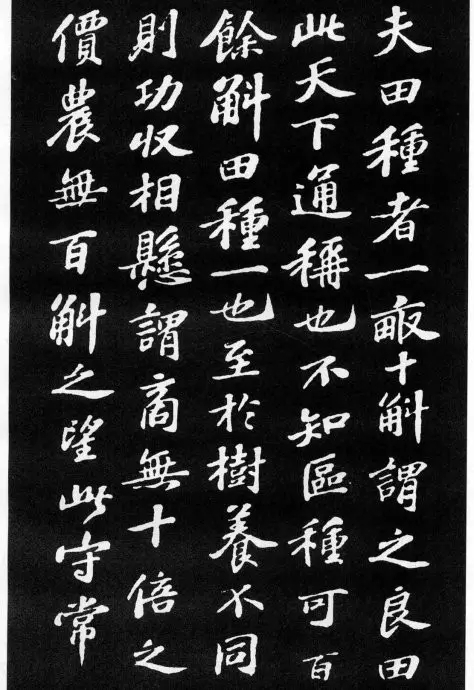 夫田種者一畝十斛謂之良田
此天下通稱也不知區種可百
餘斛田種一也至於樹養不同
則功收相懸謂商無十倍之
價農無百斛之望此守常